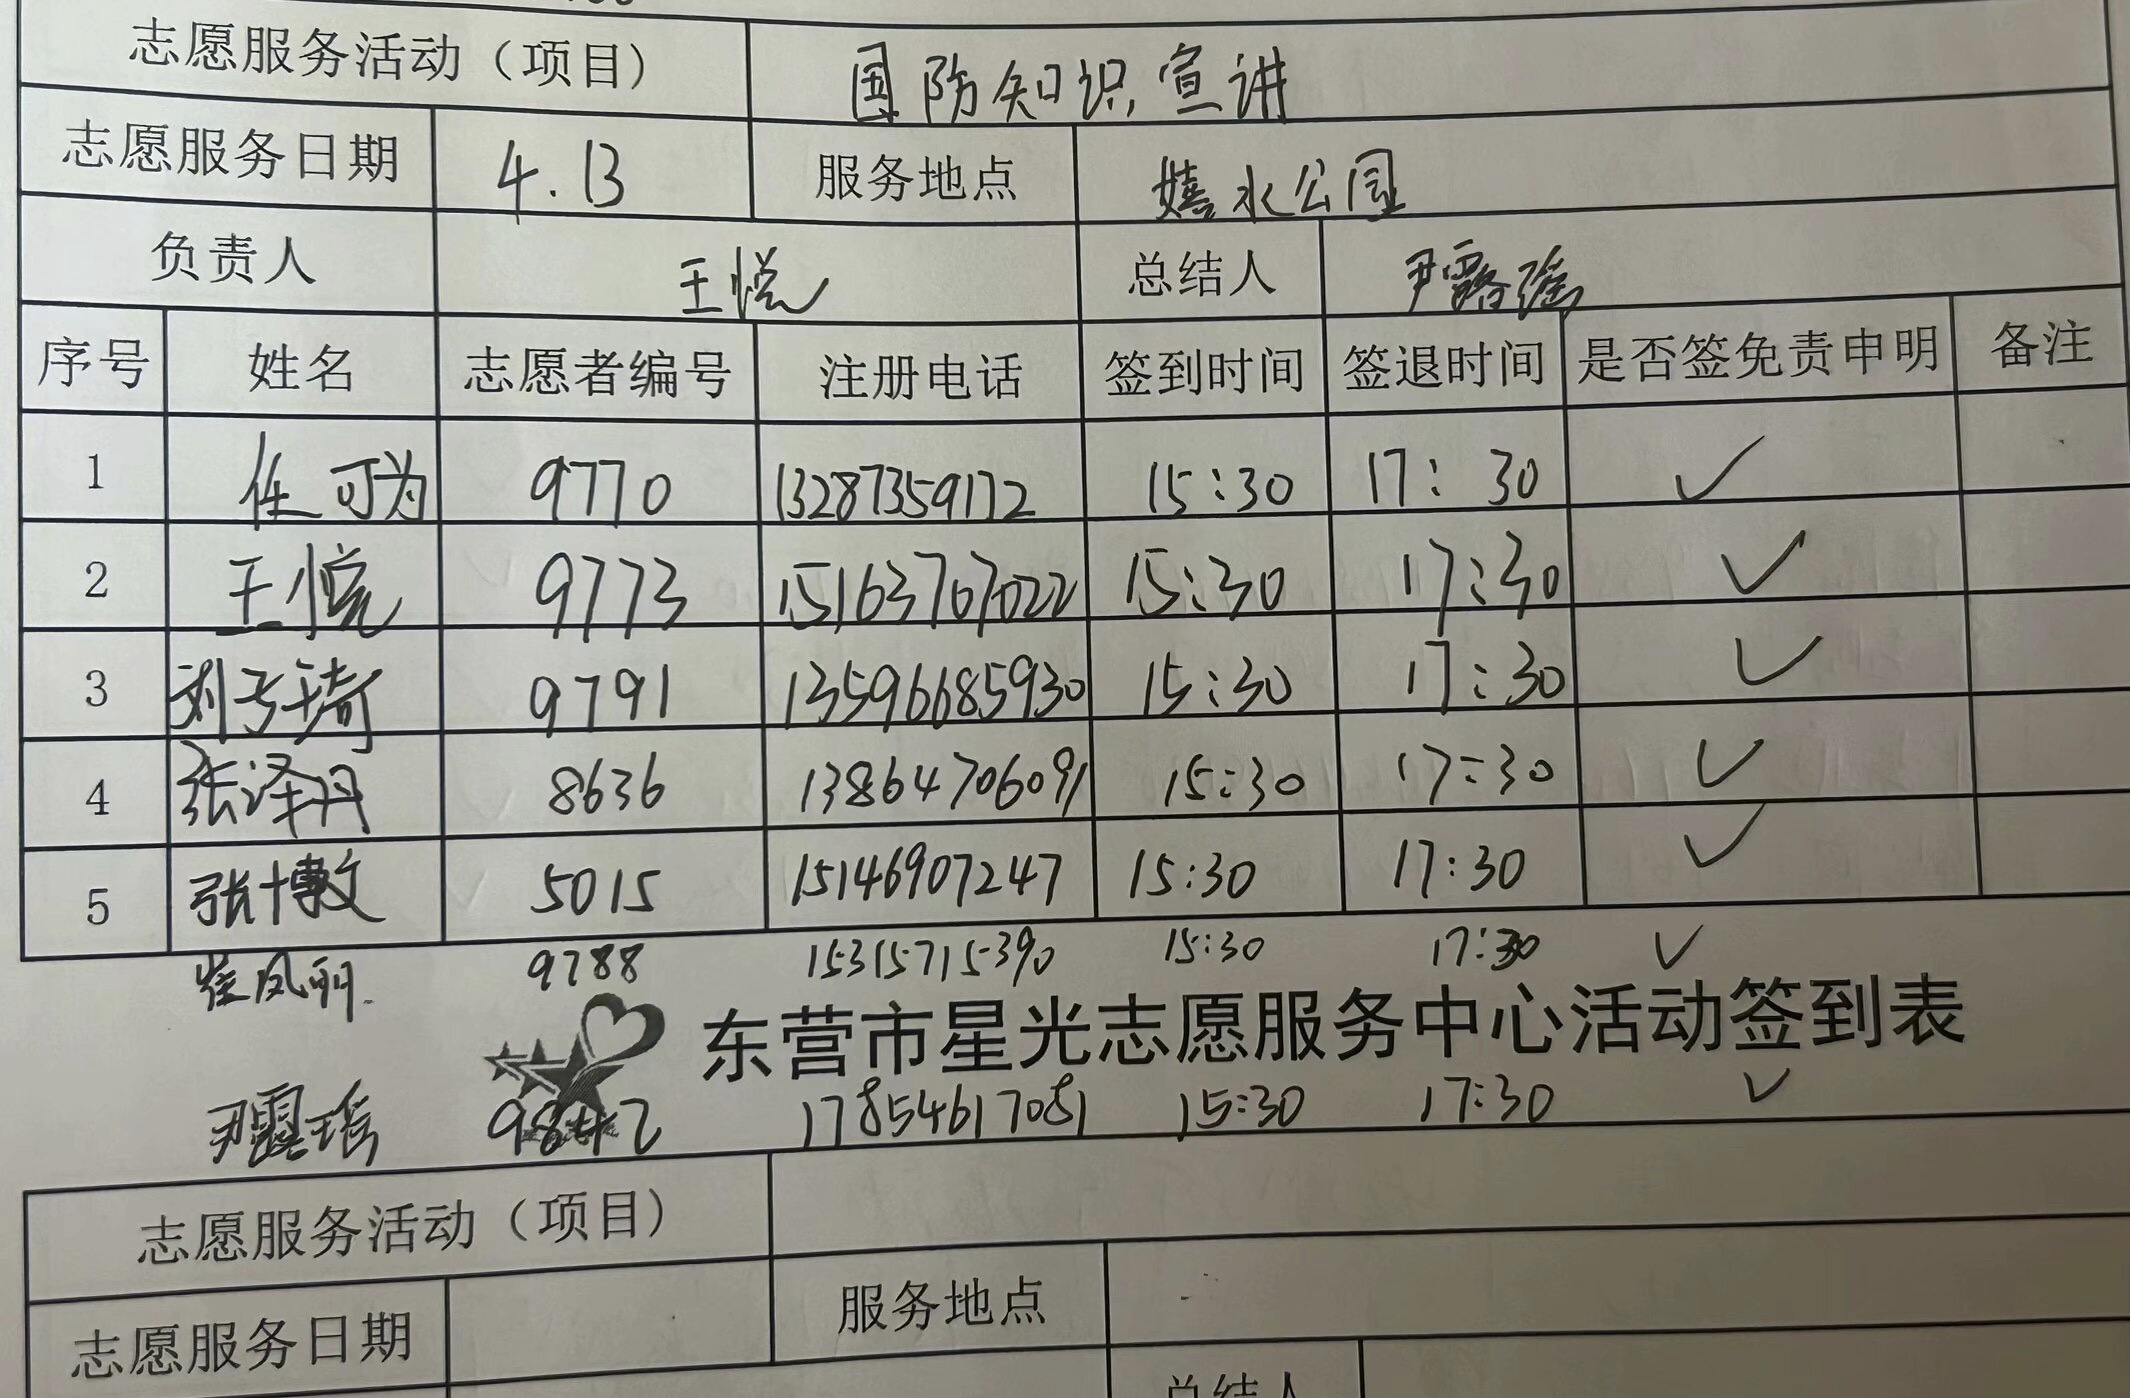 志愿服务活动（项目） 国防知识宣讲
志愿服务日期 4.13 服务地点 嬉水公园
负责人 王悦 总结人 尹露瑶
序号 姓名 志愿者编号 注册电话 签到时间 签退时间 是否签免责申明 备注
1 任可为 9770 13287359172 15:30 17:30 ✓
2 王悦 9773 15163707022 15:30 17:30 ✓
3 刘子琦 9791 13596685930 15:30 17:30 ✓
4 张泽丹 8636 13864706091 15:30 17:30 ✓
5 张博文 5015 15146907247 15:30 17:30 ✓
崔凤丽 9788 15315715390 15:30 17:30 ✓
东营市星光志愿服务中心活动签到表
尹露瑶 9842 17854617081 15:30 17:30 ✓
志愿服务活动（项目）
志愿服务日期 服务地点
总结人